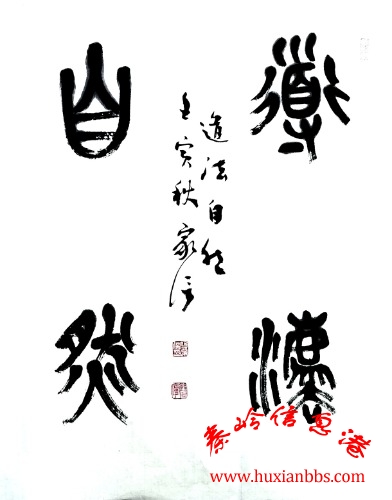 道法
自然
道法自然
壬寅秋 家
秦岭信息港
www.huxianbbs.com